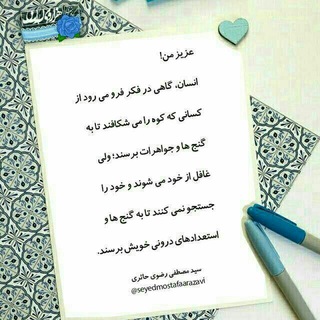 عزیز من!
انسان، گاهی در فکر فرو می رود از
کسانی که کوه را می شکافند تا به
گنج ها و جواهرات برسند؛ ولی
غافل از خود می شوند و خود را
جستجو نمی کنند تا به گنج ها و
استعدادهای درونی خویش برسند.
سید مصطفی رضوی حائری
@seyedmostafaarazavi